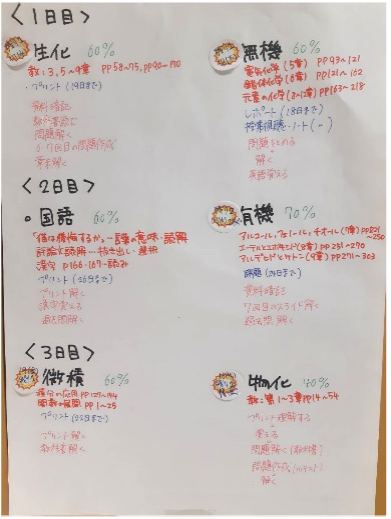 <1日目>
生化 60%
教:3,5~9章 pp58~75, pp90~190
・プリント(19日まで)
資料暗記
教科書読んで
問題解く
6,7回目の問題作成
章末解く
無機 60%
電気化学(5章) pp93~121
錯体化学(6章) pp121~162
元素の化学(8~12章) pp163~218
レポート(18日まで)
授業視聴・ノート(~)
問題まとめる
↓
解く
用語覚える
<2日目>
国語 60%
「猫は後悔するか」…語彙の意味・読解
評論文読解…抜き出し・選択
漢字 p166・167…読み
プリント(26日まで)
プリント解く
漢字覚える
過去問解く
有機 70%
アルコール,フェノール,チオール(7章) pp221
~250
エーテルとエポキシド(8章) pp251~270
アルデヒドとケトン(9章) pp271~303
課題(21日まで)
資料暗記
7回目のスライド解く
過去問 解く
<3日目>
微積 60%
積分の応用 pp127~144
関数の展開 pp1~25
プリント(22日まで)
プリント解く
教科書解く
物化 40%
教:第1~3章 pp14~54
プリント理解する
↓
覚える
問題解く(教科書)
問題作成
解く